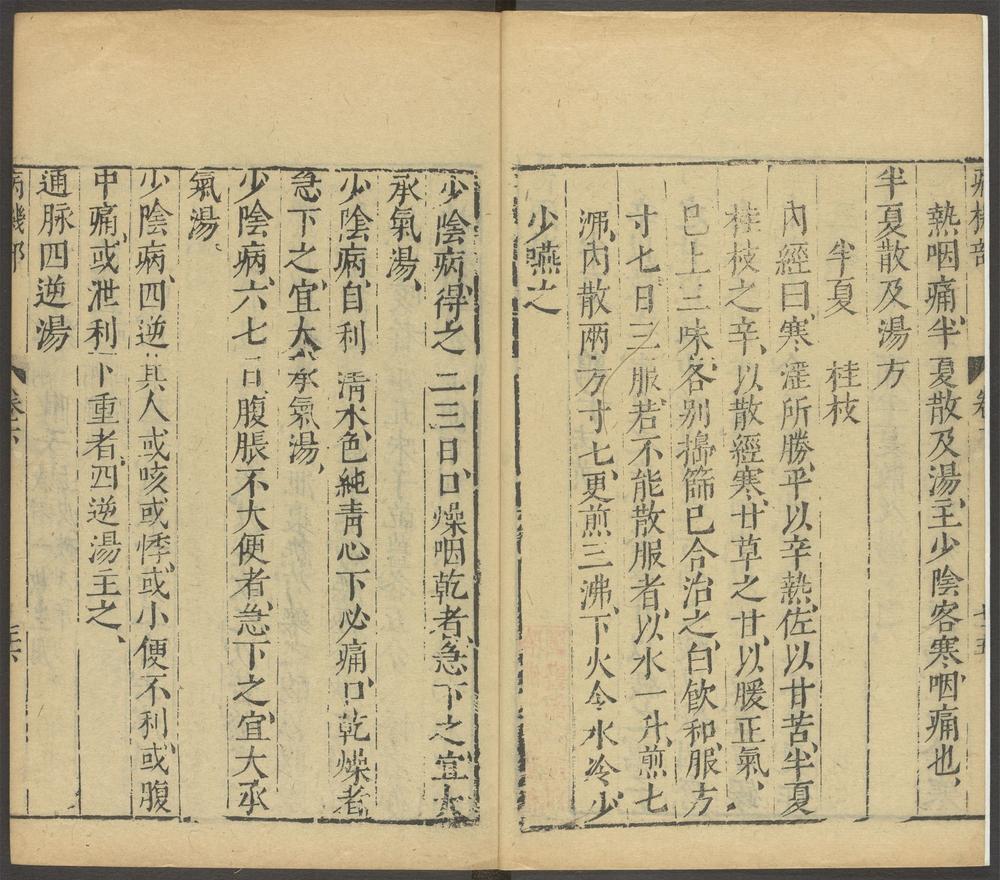 熱咽痛、半夏散及湯、主少陰客寒咽痛也、
半夏散及湯方
半夏　桂枝
內經曰、寒淫所勝、平以辛熱、佐以甘苦、半夏
桂枝之辛、以散經寒、甘草之甘、以暖正氣、
巳上三味、各别搗篩巳合治之、白飲和、服方
寸七日三服、若不能散服者、以水一升、煎七
沸、內散兩方寸七、更煎三沸、下火令水冷、少
少嚥之
少陰病、得之二三日、口燥咽乾者、急下之、宜大
承氣湯、
少陰病、自利清水、色純青、心下必痛、口乾燥者
急下之、宜大承氣湯、
少陰病、六七日、腹脹不大便者、急下之、宜大承
氣湯。
少陰病、四逆、其人或咳、或悸、或小便不利、或腹
中痛、或泄利下重者、四逆湯主之、
通脉四逆湯